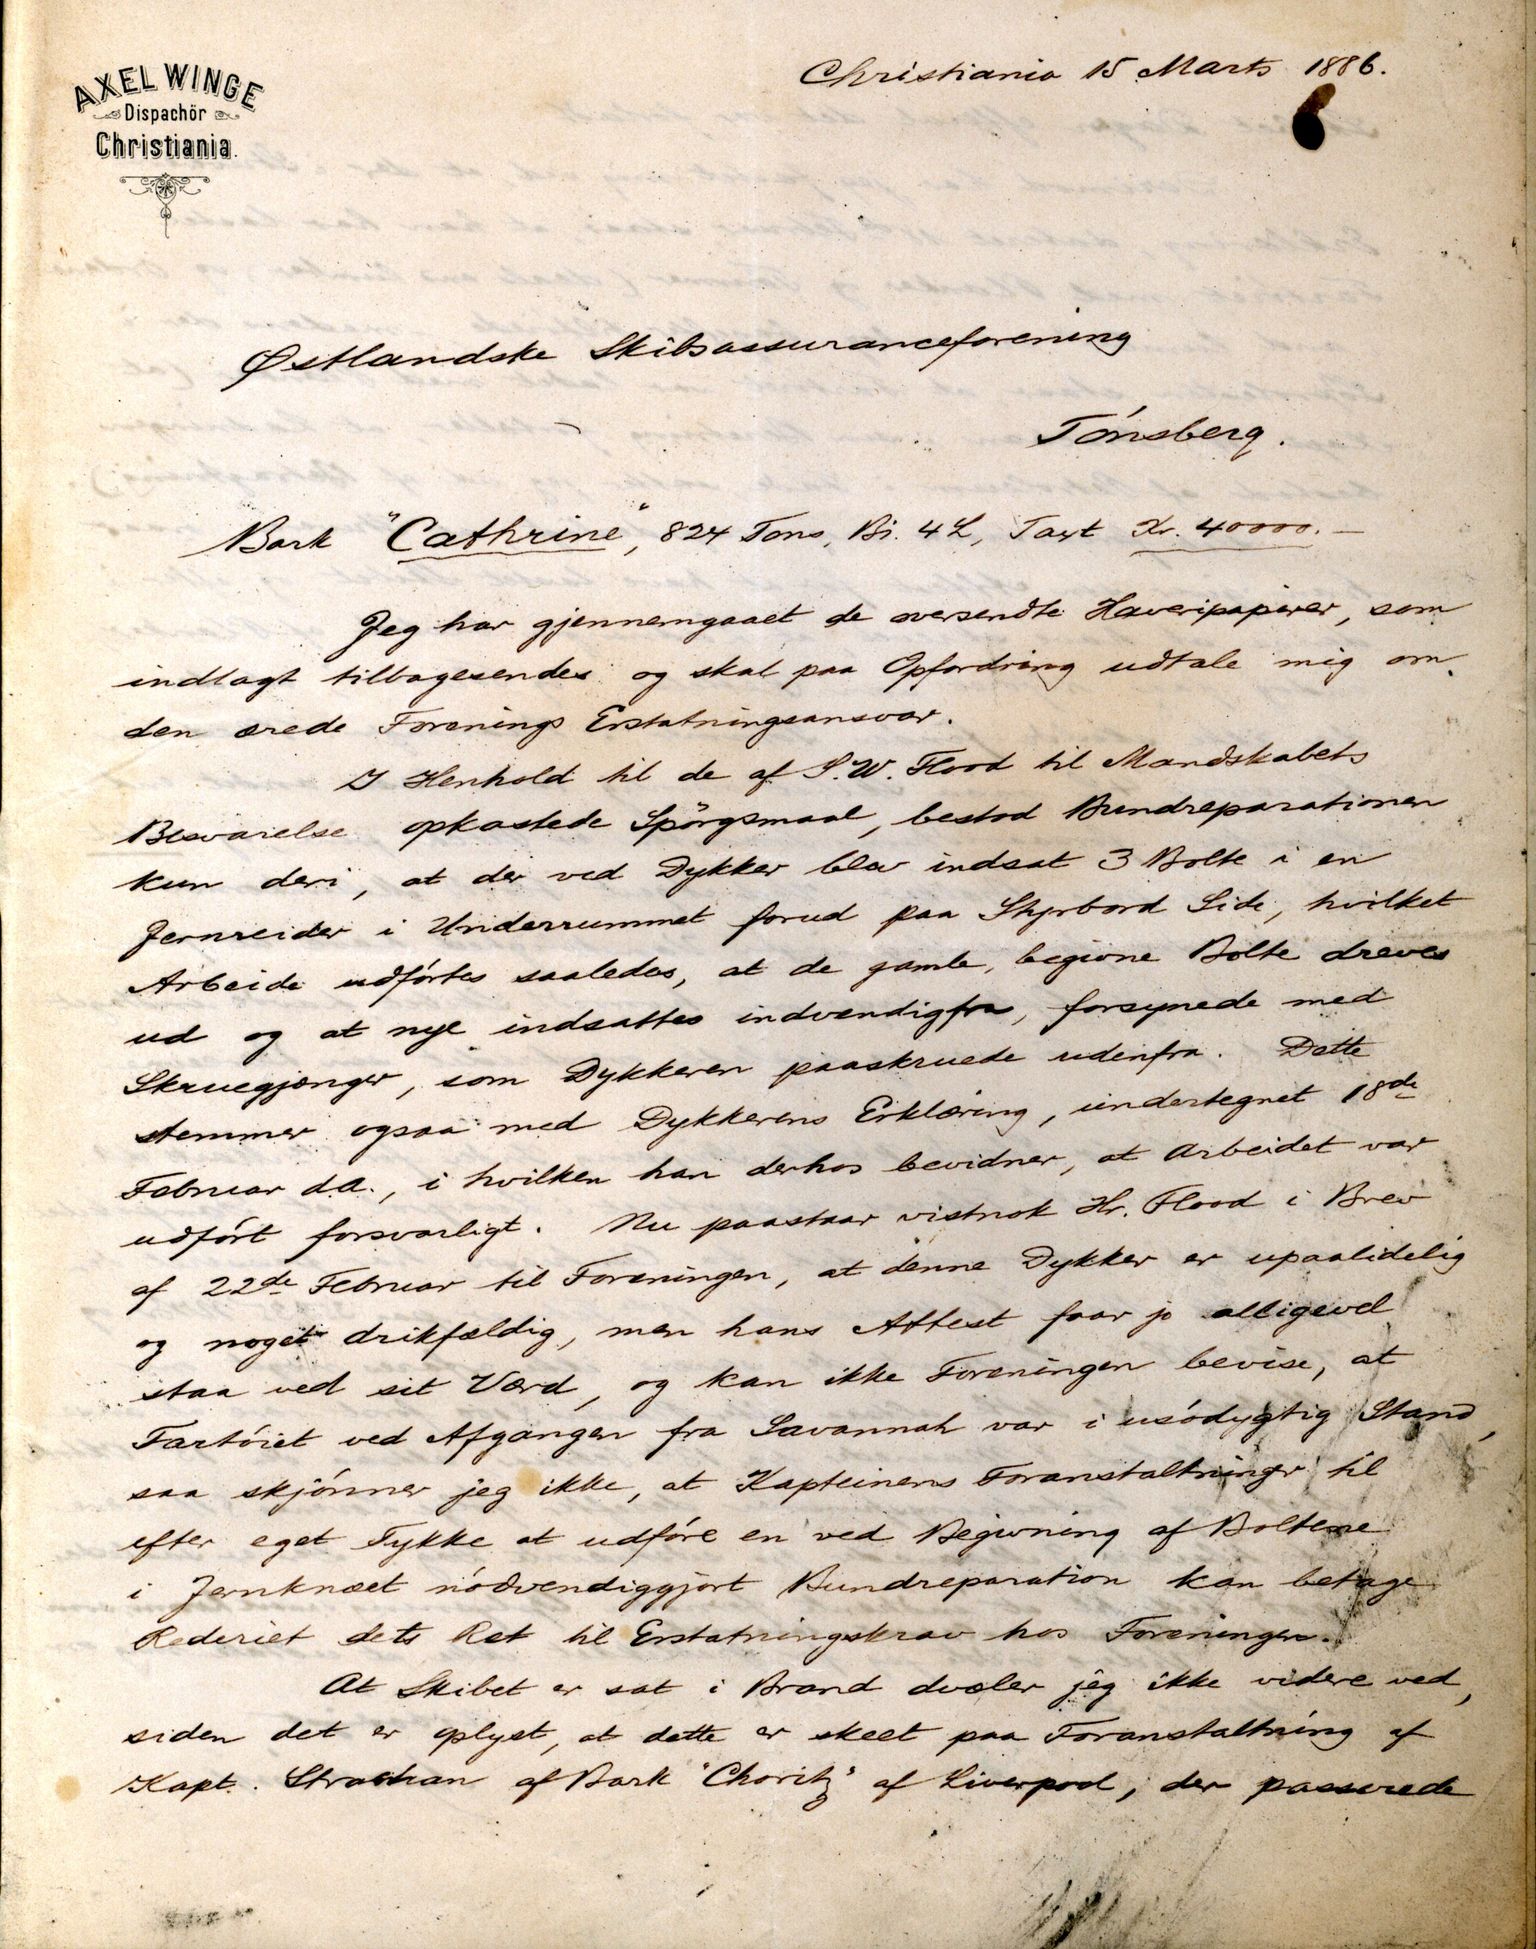 AXEL WINGE
Dispachör
Christiania.
Christiania 15 Marts 1886.
Østlandske Skibsassuranceforening
Tónsberg.
Bark "Cathrine", 824 Tons, Bi. 4 L, Taxt Kr. 40000.—
Jeg har gjennemgaaet de oversendte Haveripapirer, som
indlagt tilbagesendes og skal paa Opfordring udtale mig om
den ærede Forenings Erstatningsansvar.
I Henhold til de af S. W. Flood til Mandskabets
Besvarelse opkastede Spörgsmaal, bestod Bundreparationen
kun deri, at der ved Dykker blev indsat 3 Bolte i en
Jernreider i Underrummet forud paa Styrbord Side, hvilket
Arbeide udförtes saaledes, at de gamle, begivne Bolte dreves
ud og at nye indsattes indvendigfra, forsynede med
Skruegjænger, som Dykkeren paaskruede udenfra. Dette
stemmer ogsaa med Dykkerens Erklæring, undertegnet 18de
Februar d.A., i hvilken han derhos bevidner, at Arbeidet var
udfört forsvarligt. Nu paastaar vistnok Hr. Flood i Brev
af 22de Februar til Foreningen, at denne Dykker er upaalidelig
og noget drikfældig, men hans Attest faar jo alligevel
staa ved sit Værd, og kan ikke Foreningen bevise, at
Fartöiet ved Afgangen fra Savannah var i usödygtig Stand,
saa skjönner jeg ikke, at Kapteinens Foranstaltninger til
efter eget Tykke at udföre en ved Begivning af Boltene
i Jernknæet nödvendiggjort Bundreparation kan betage
Rederiet dets Ret til Erstatningskrav hos Foreningen.
At Skibet er sat i Brand dvæler jeg ikke videre ved,
siden det er oplyst, at dette er skeet paa Foranstaltning af
Kapt. Strachan af Bark "Charity" af Liverpool, der passerede